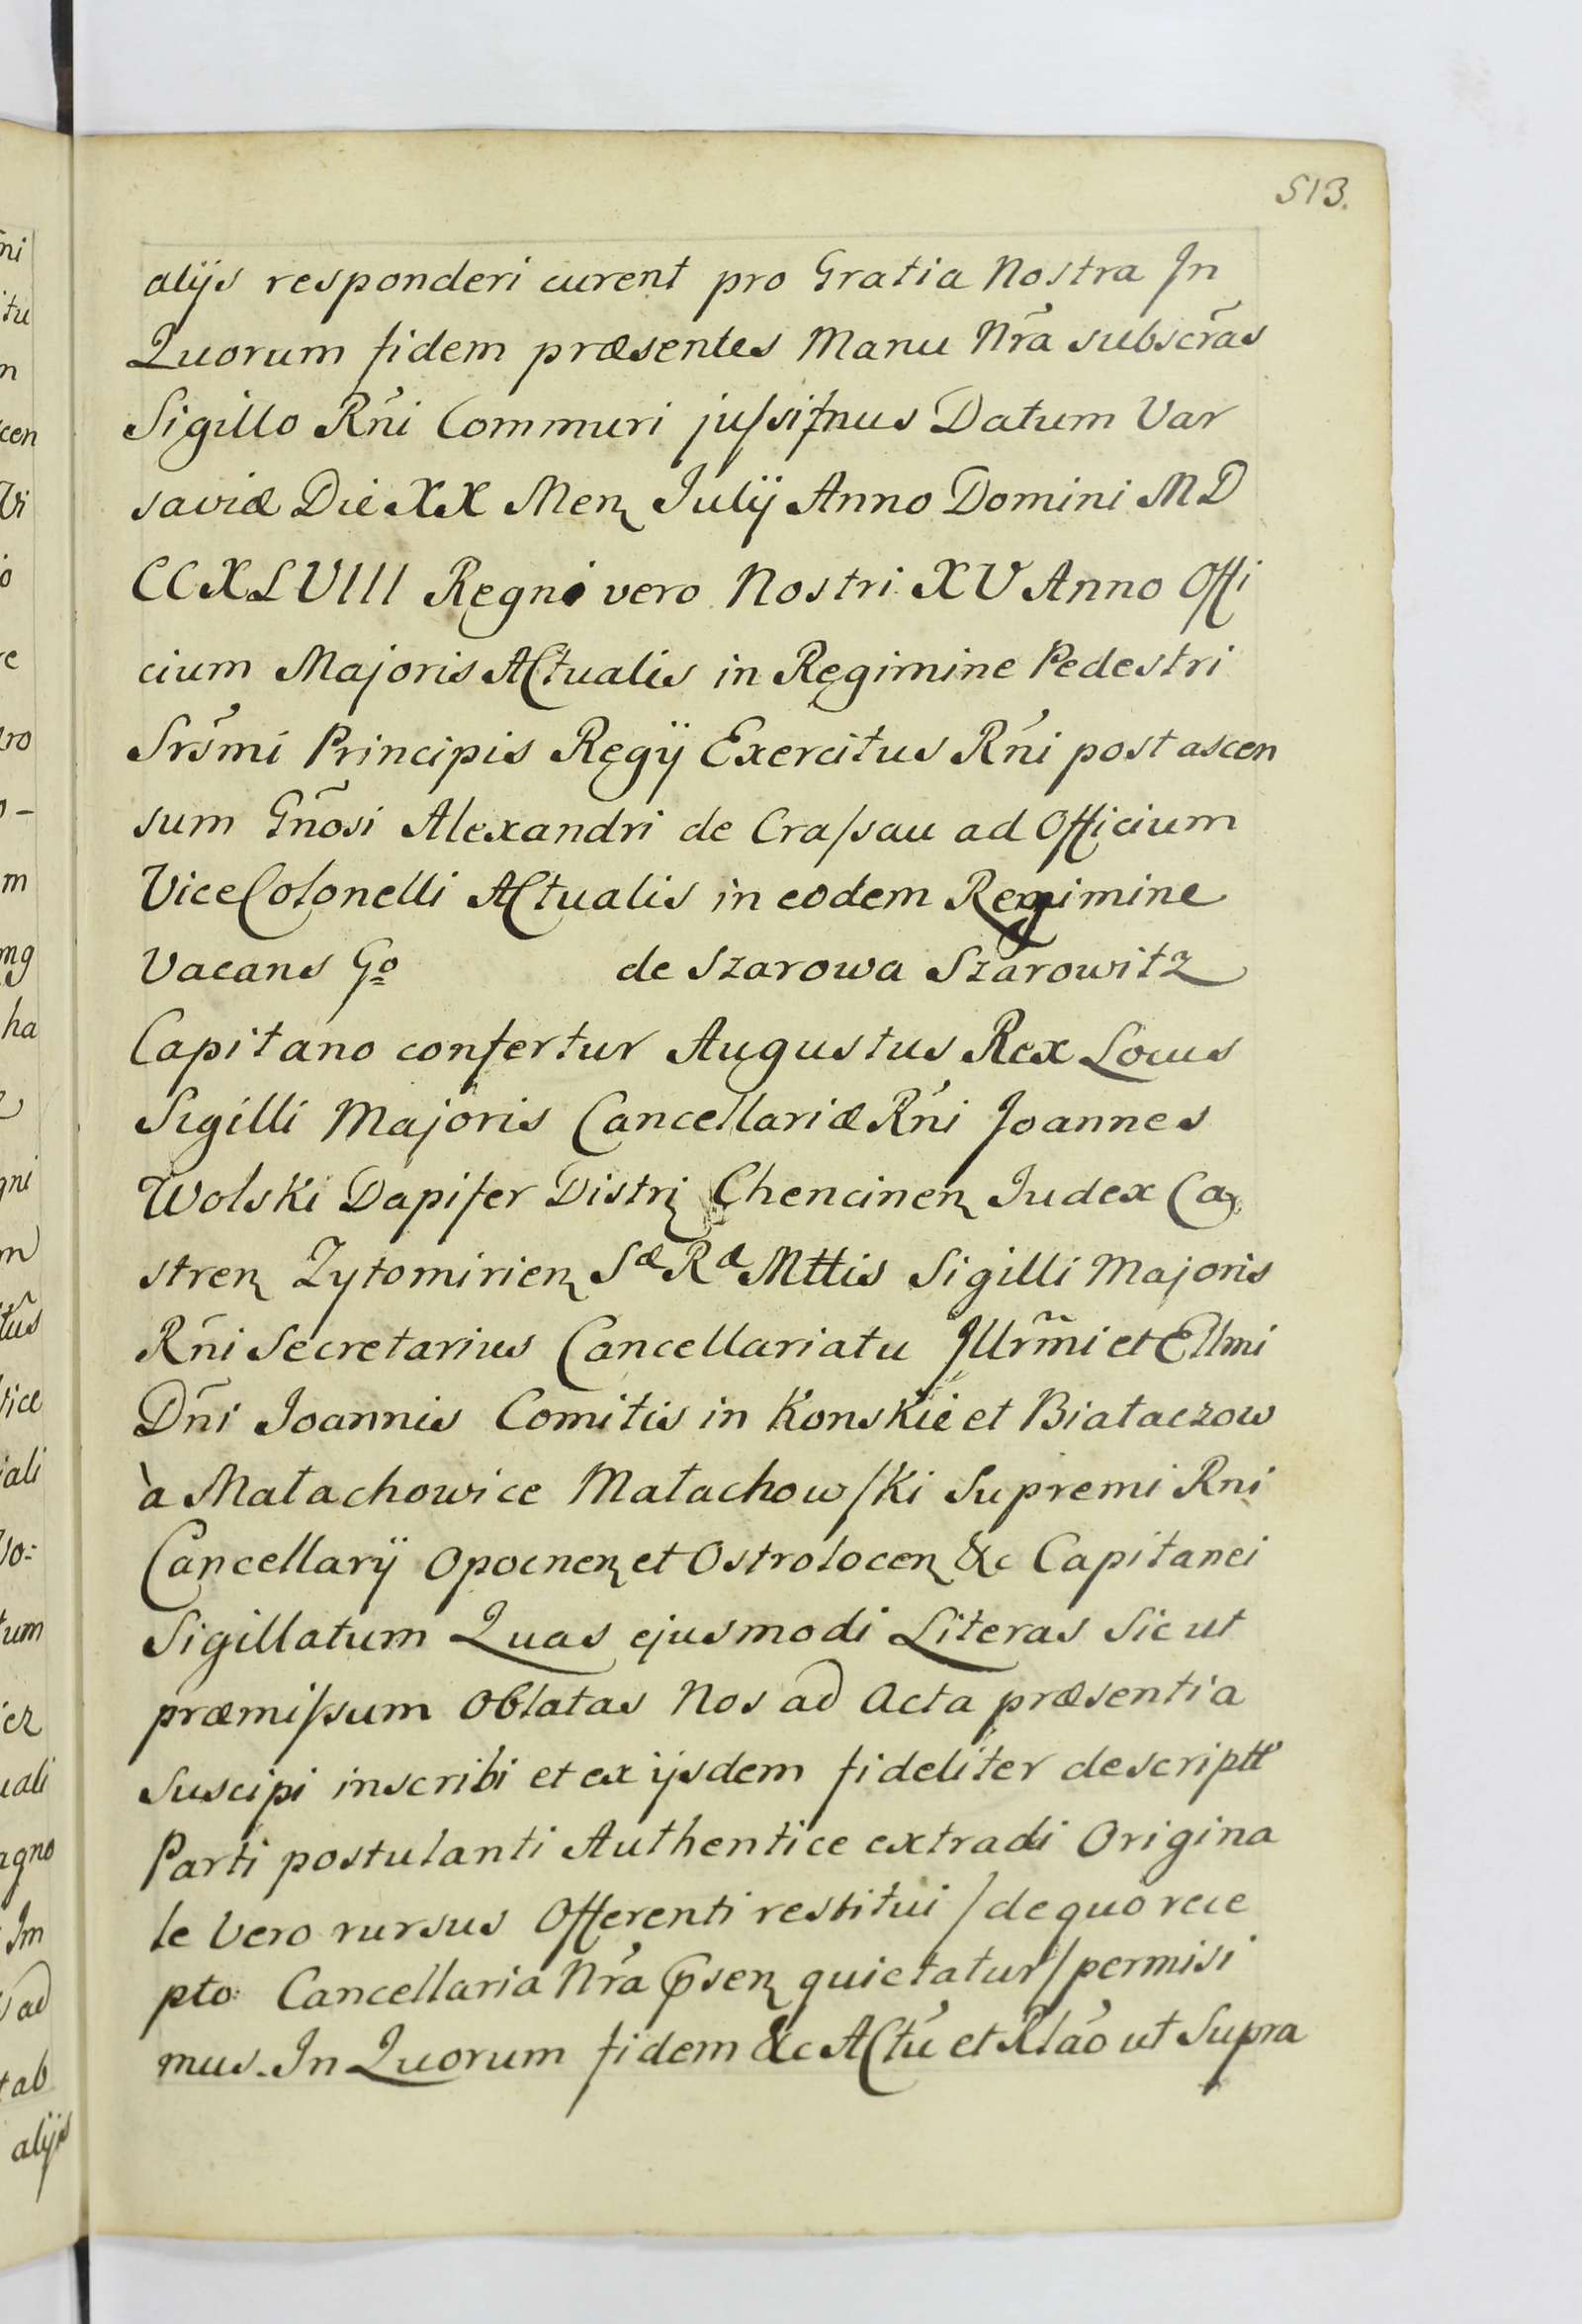 513.
alijs responderi curent pro Gratia Nostra In
Quorum fidem præsentes Manu Nr̃a subscr̃as
Sigillo Rñi Commuri jussimus Datum Var
saviæ Die XX Menȥ Julij Anno Domini MD
CCXLVIII Regni vero Nostri XV Anno Offi
cium Majoris Actualis in Regimine Pedestri
Srs̃mi Principis Regij Exercitus Rñi post ascen
sum Gñosi Alexandri de Crassau ad Officium
ViceColonelli Actualis in eodem Regimine
Vacans Go de Szarowa Szarowitz
Capitano confertur Augustus Rex Locus
Sigilli Majoris Cancellariæ Rñi Joannes
Wolski Dapifer Distriȥ Chencinenȥ Judex Ca
strenȥ Zytomirienȥ Sæ Ræ Mttis Sigilli Majoris
Rñi Secretarius Cancellariatu Jllrm̃i et Ellmi
Dñi Joannis Comitis in Konskie et Biataczow
à Matachowice Matachowski Supremi Rni
Cancellarij Opocnenȥ et Ostrolocenȥ &c Capitanei
Sigillatum Quas ejusmodi Literas Sic ut
præmissum Oblatas Nos ad Acta præsentia
Suscipi inscribi et ex ijsdem fideliter descriptt
Parti postulanti Authentice extradi Origina
le Vero rursus Offerenti restitui / de quo rece
pto: Cancellaria Nr̃a p̃senȥ quietatur / permisi
mus. In Quorum fidem &c Actũ et Rlão ut Supra
ni
tu
n
cen
Vi
o
e
ro
o -
m
mg
ha
gni
m
tũs
Vice
iali
Vo:
tum
uali
agno
Im
ad
tab
alijs